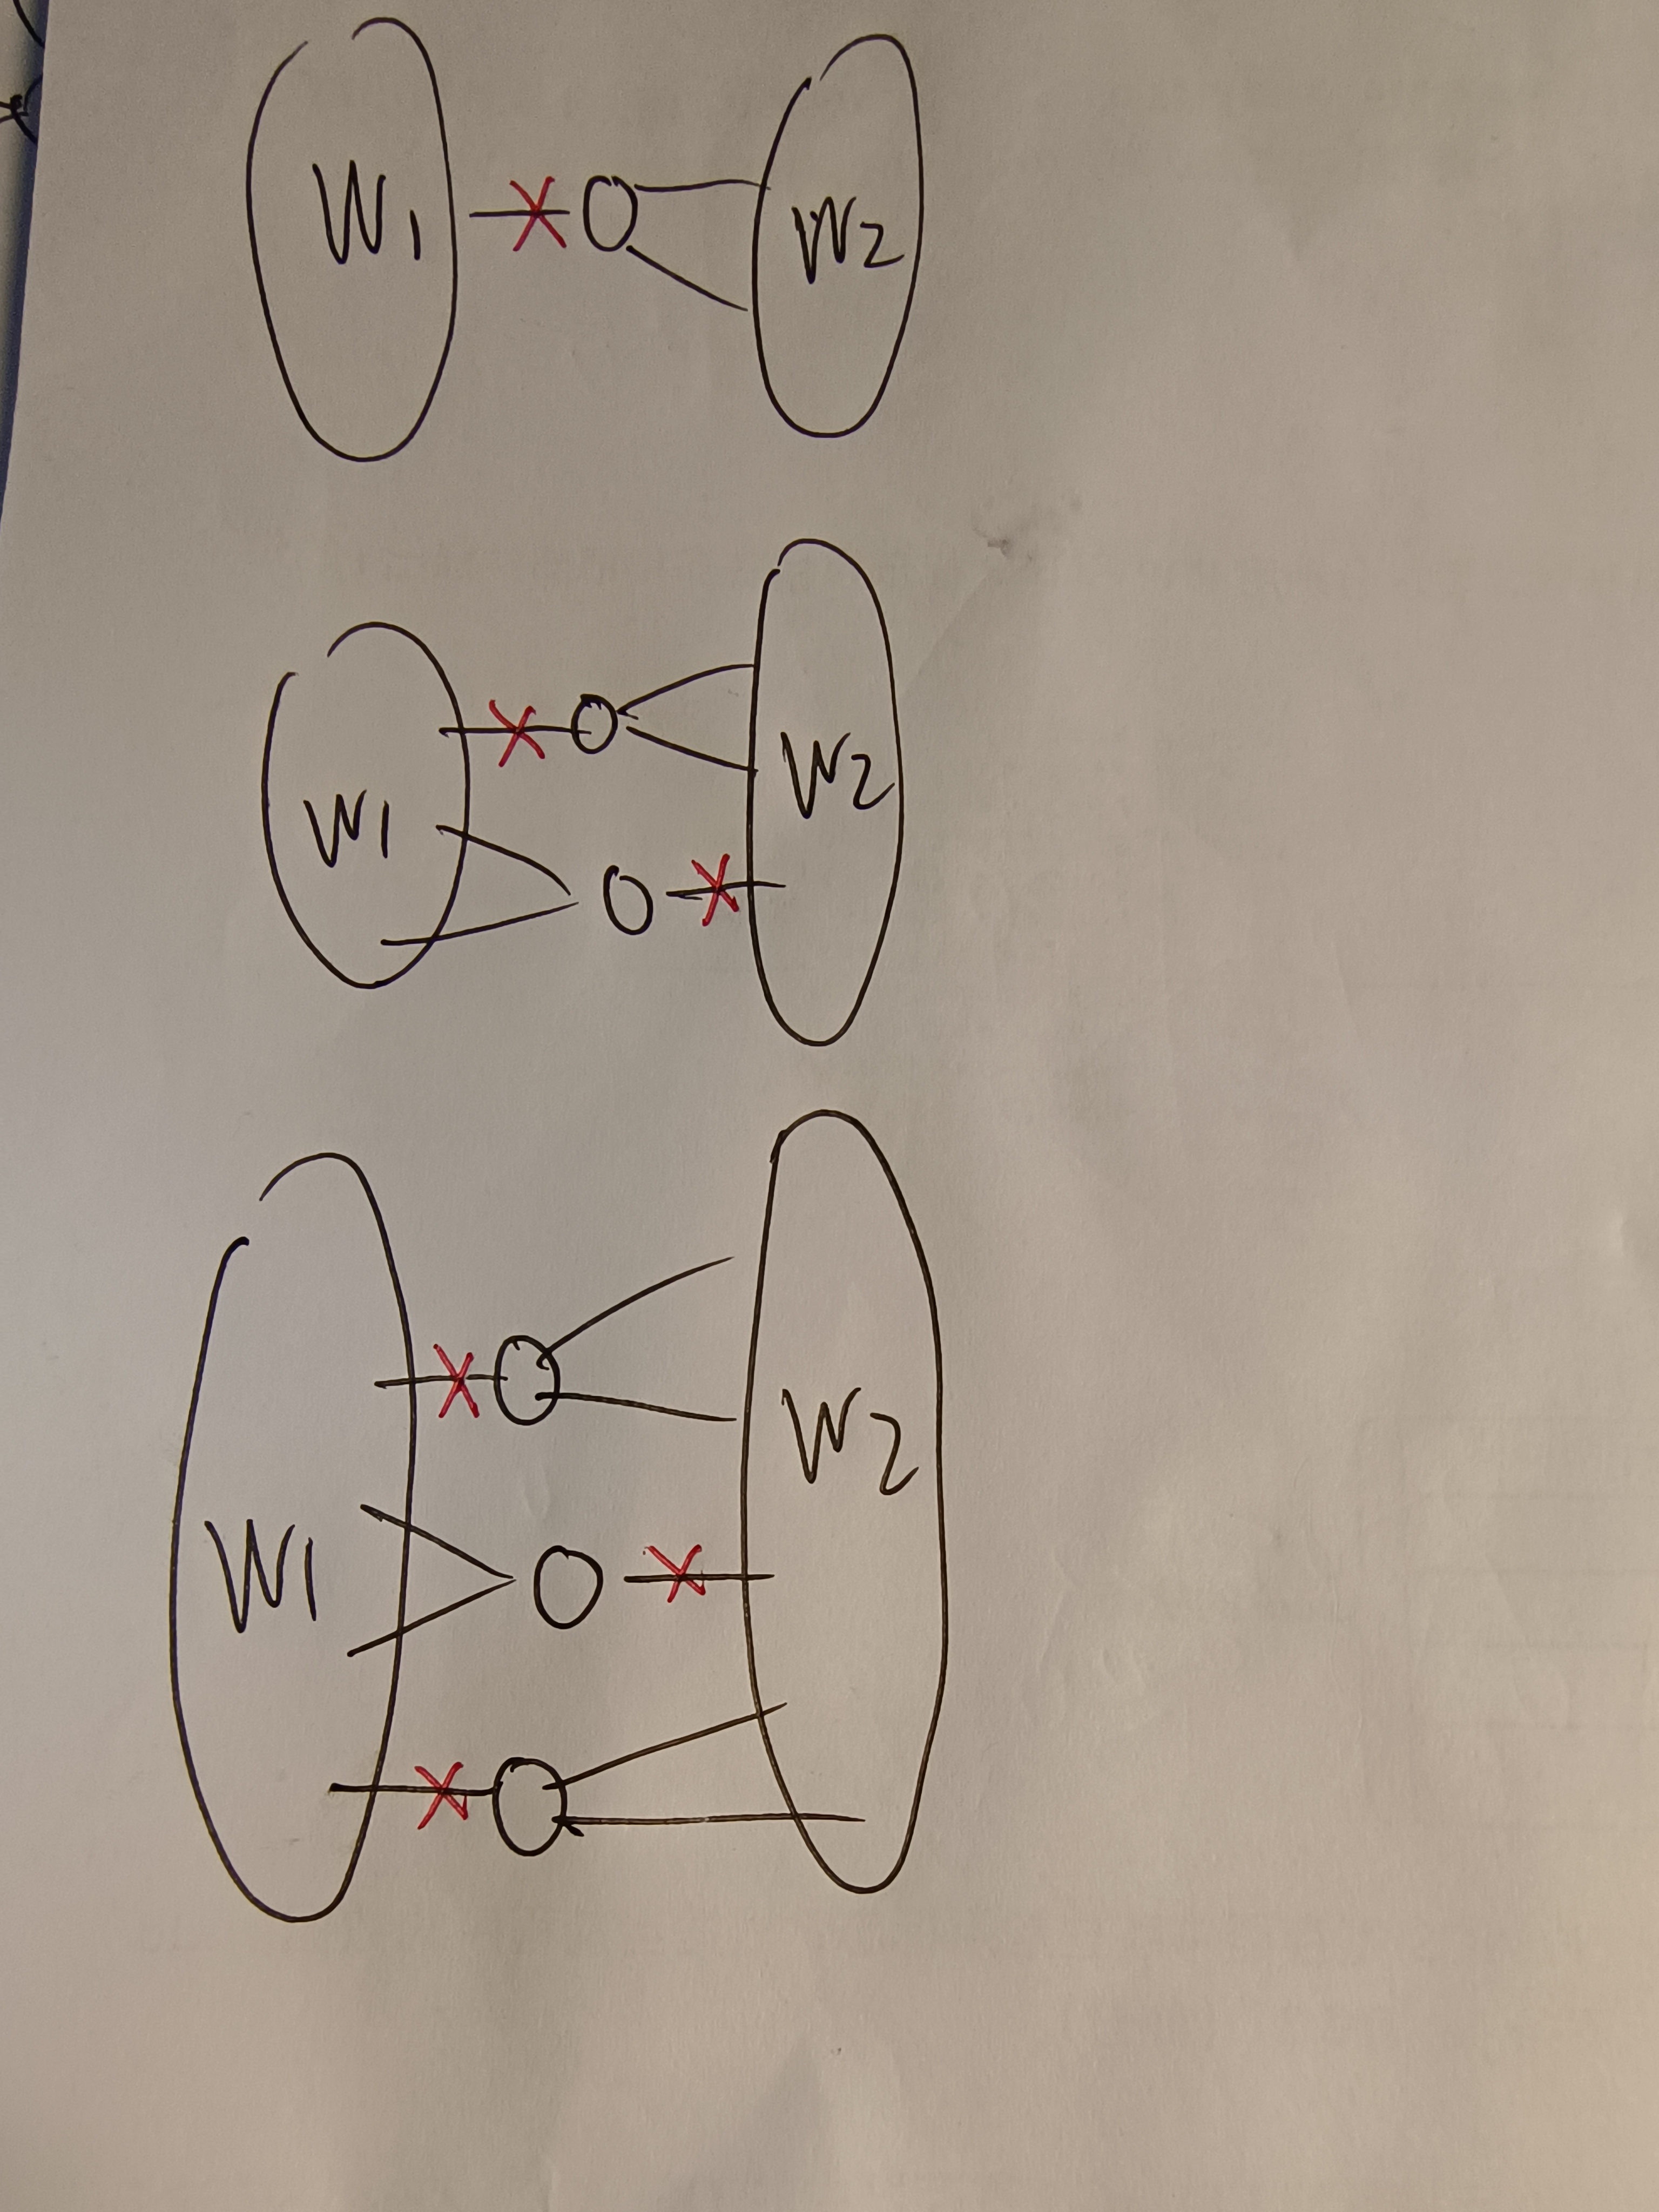 W1 W2
W1 W2
W1 W2